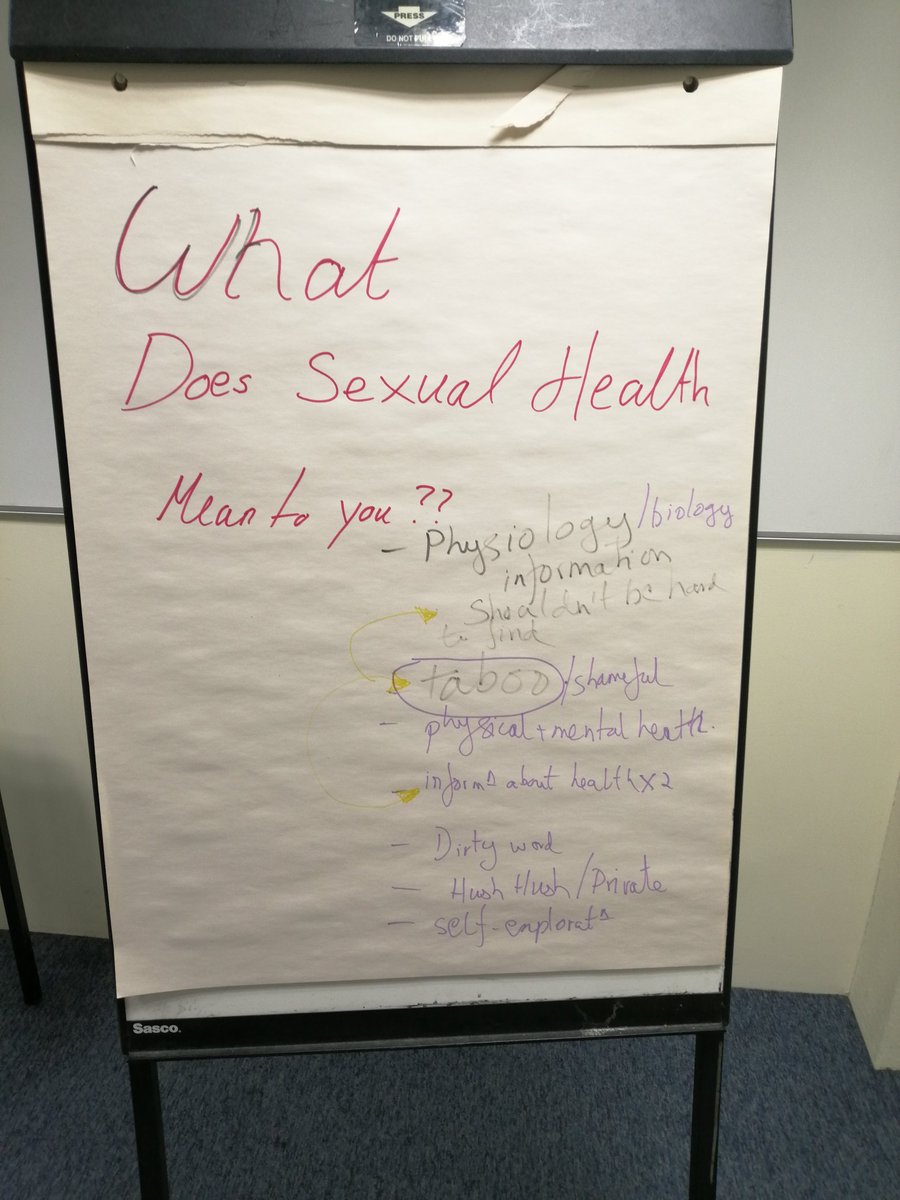 PRESS
DO NOT PULL
What
Does Sexual Health
Mean to you ??
- Physiology/biology
information
Shouldn't be hard
to find
taboo/shameful
- physical + mental health.
- informⁿ about health x2
- Dirty word
- Hush Hush/Private
- self-exploratⁿ
Sasco.